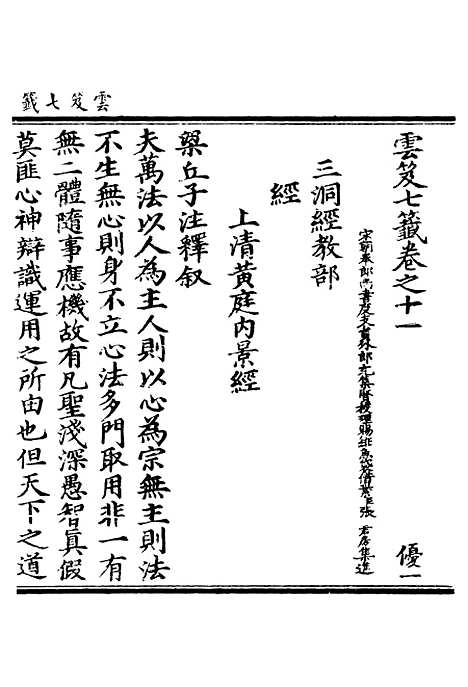 雲笈七籤
雲笈七籤卷之十一 優一
宋朝奉郎尚書度支員外郎充集賢校理賜緋魚袋借紫臣張君房集進
三洞經教部
經
上清黃庭內景經
梁丘子注釋叙
夫萬法以人為主人則以心為宗無主則法
不生無心則身不立心法多門取用非一有
無二體隨事應機故有凡聖淺深愚智真假
莫匪心神辯識運用之所由也但天下之道